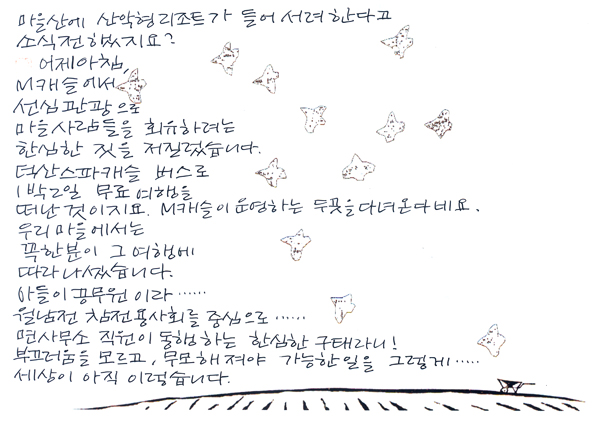 마을산에 산악형리조트가 들어서려한다고
소식전했었지요?
어제아침,
M캐슬에서
선심관광으로
마을사람들을 회유하려는
한심한 짓을 저질렀습니다.
덕산스파캐슬 버스로
1박2일 무료여행을
떠난것이지요. M캐슬이운영하는 두곳을다녀온다네요.
우리마을에서는
꼭한분이 그여행에
따라나섰습니다.
아들이공무원이라……
월남전 참전용사회를 중심으로……
면사무소 직원이동행하는 한심한구태라니!
부끄러움을 모르고, 무모해져야 가능한일을 그렇게……
세상이 아직 이렇습니다.